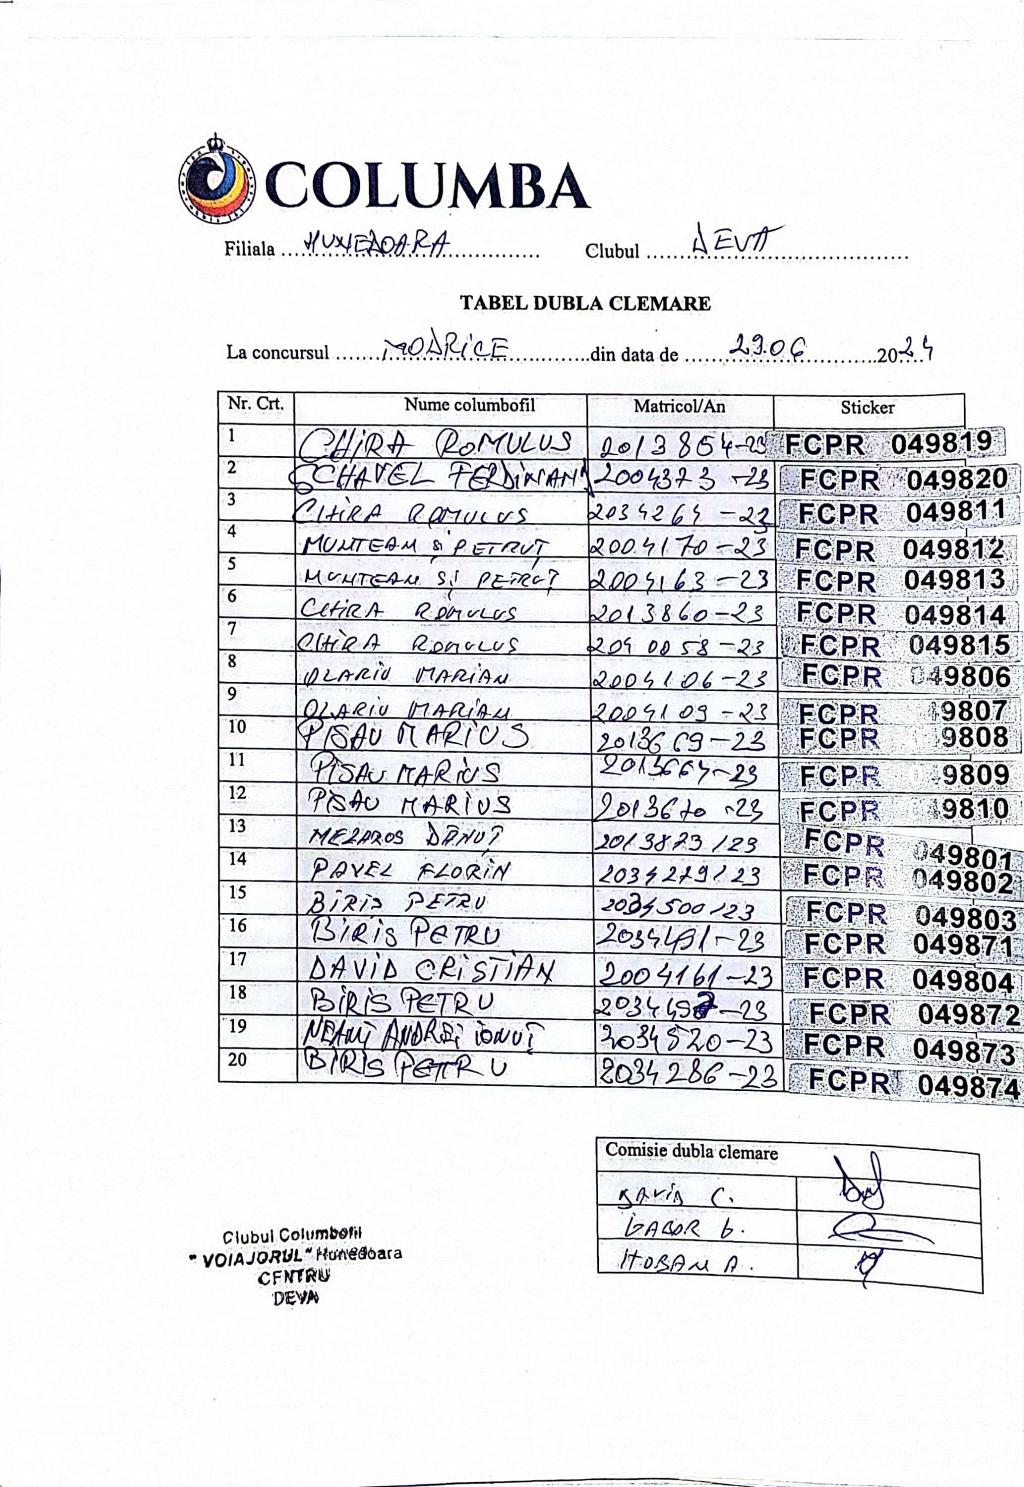 COLUMBA
Filiala ... HUNEDOARA ... Clubul ... DEVA ...
TABEL DUBLA CLEMARE
La concursul ... MODRICE ... din data de ... 29.06 ... 2024
Nr. Crt. Nume columbofil Matricol/An Sticker
1 CHIRA ROMULUS 2013854-23 FCPR 049819
2 SCHAVEL FERDINAND 2004373-23 FCPR 049820
3 CHIRA ROMULUS 2034264-23 FCPR 049811
4 MUNTEAN și PETRUȚ 2004170-23 FCPR 049812
5 MUNTEAN ȘI PETRUȚ 2004163-23 FCPR 049813
6 CHIRA ROMULUS 2013860-23 FCPR 049814
7 CHIRA ROMULUS 2040058-23 FCPR 049815
8 OLARIU MARIAN 2004106-23 FCPR 049806
9 OLARIU MARIAN 2004109-23 FCPR 9807
10 PISAU MARIUS 2013669-23 FCPR 9808
11 PISAU MARIUS 2013664-23 FCPR 9809
12 PISAU MARIUS 2013670-23 FCPR 9810
13 MEZAROS DĂNUȚ 2013873/23 FCPR 049801
14 PAVEL FLORIN 2034279/23 FCPR 049802
15 BIRIS PETRU 2034500/23 FCPR 049803
16 BIRIS PETRU 2034491-23 FCPR 049871
17 DAVID CRISTIAN 2004161-23 FCPR 049804
18 BIRIS PETRU FCPR 049872
19 NEAMȚ ANDREI IONUȚ 2034520-23 FCPR 049873
20 BIRIS PETRU 2034286-23 FCPR 049874
Comisie dubla clemare
DAVID C.
GABOR G.
HOBAN A.
Clubul Columbofil
"VOIAJORUL" Hunedoara
CENTRU
DEVA